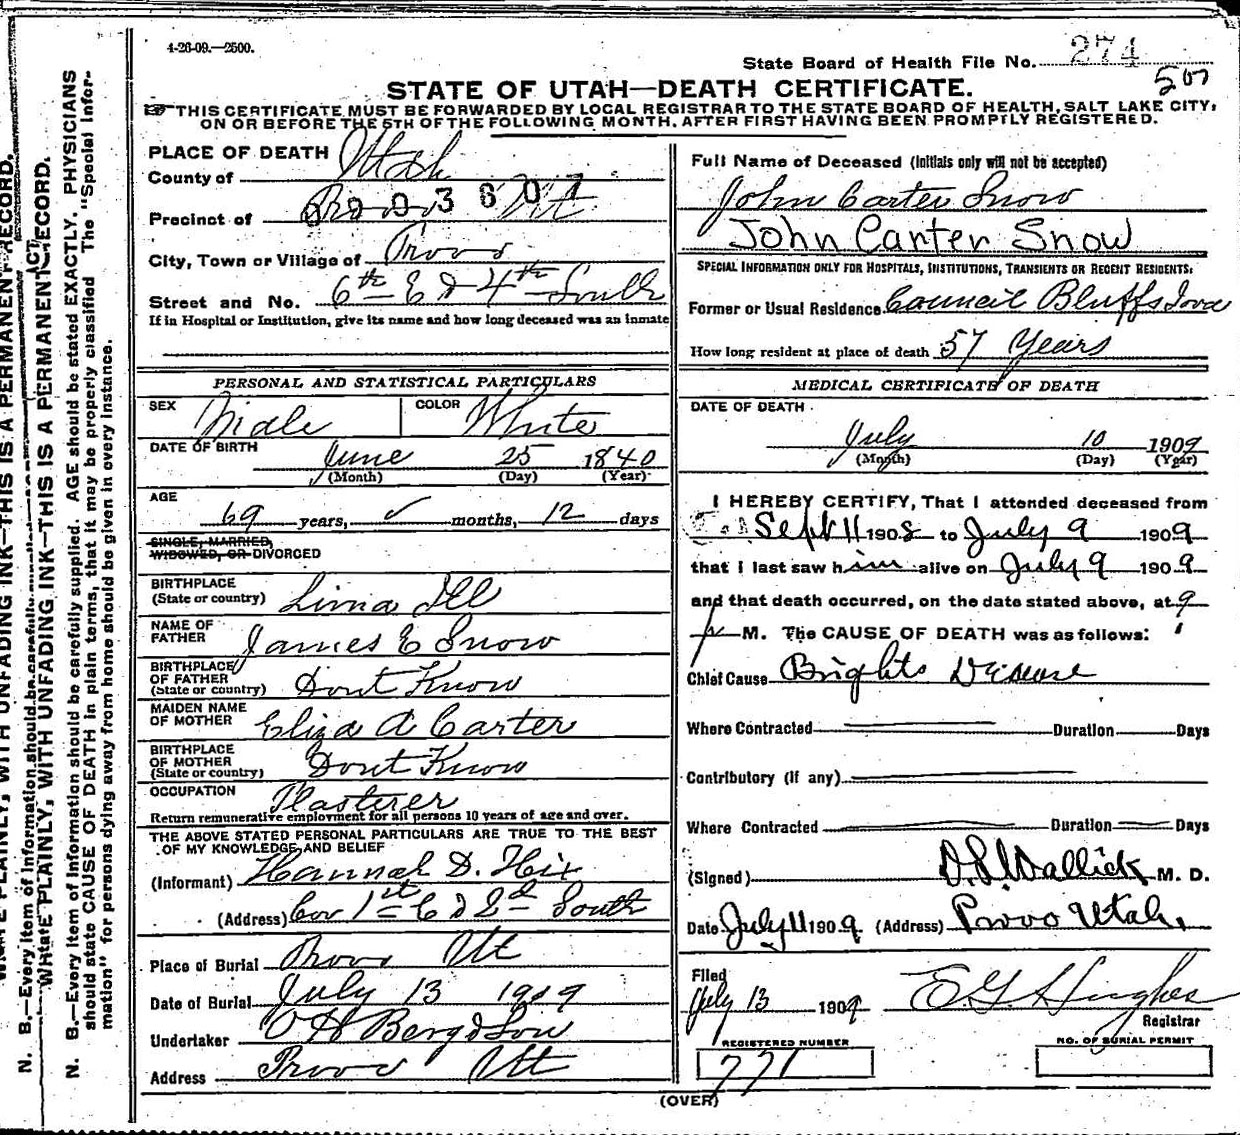 4-26-09.—2500.
State Board of Health File No. 274
507
STATE OF UTAH—DEATH CERTIFICATE.
THIS CERTIFICATE MUST BE FORWARDED BY LOCAL REGISTRAR TO THE STATE BOARD OF HEALTH, SALT LAKE CITY,
ON OR BEFORE THE 5TH OF THE FOLLOWING MONTH, AFTER FIRST HAVING BEEN PROMPTLY REGISTERED.
PLACE OF DEATH
County of Utah
Precinct of Provo Ut
City, Town or Village of Provo
Street and No. 6th E & 4th South
If in Hospital or Institution, give its name and how long deceased was an inmate
PERSONAL AND STATISTICAL PARTICULARS
SEX Male COLOR White
DATE OF BIRTH June 25 1840
(Month) (Day) (Year)
AGE 69 years, ✓ months, 12 days
SINGLE, MARRIED,
WIDOWED, OR DIVORCED
BIRTHPLACE
(State or country) Lima Ill
NAME OF
FATHER James E Snow
BIRTHPLACE
OF FATHER
(State or country) Dont Know
MAIDEN NAME
OF MOTHER Eliza A Carter
BIRTHPLACE
OF MOTHER
(State or country) Dont Know
OCCUPATION Plasterer
Return remunerative employment for all persons 10 years of age and over.
THE ABOVE STATED PERSONAL PARTICULARS ARE TRUE TO THE BEST
OF MY KNOWLEDGE AND BELIEF
(Informant) Hannah D. Hix
(Address) Cor 1st E & 2d South
Place of Burial Provo Ut
Date of Burial July 13 1909
Undertaker O H Berg & Son
Address Provo Ut
Full Name of Deceased (Initials only will not be accepted)
John Carter Snow
John Carter Snow
SPECIAL INFORMATION ONLY FOR HOSPITALS, INSTITUTIONS, TRANSIENTS OR RECENT RESIDENTS:
Former or Usual Residence Council Bluffs Iowa
How long resident at place of death 57 Years
MEDICAL CERTIFICATE OF DEATH
DATE OF DEATH
July 10 1909
(Month) (Day) (Year)
I HEREBY CERTIFY, That I attended deceased from
Sept 11 1908 to July 9 1909
that I last saw him alive on July 9 1909
and that death occurred, on the date stated above, at 9
P M. The CAUSE OF DEATH was as follows:
Chief Cause Brights Disease
Where Contracted Duration Days
Contributory (if any)
Where Contracted Duration Days
(Signed) M. D.
Date July 11 1909 (Address) Provo Utah.
Filed
July 13 1909 E G Hughes
Registrar
REGISTERED NUMBER NO. OF BURIAL PERMIT
771
(OVER)
N. B.—Every item of information should be carefully supplied. AGE should be stated EXACTLY. PHYSICIANS
should state CAUSE OF DEATH in plain terms, that it may be properly classified The "Special Infor-
mation" for persons dying away from home should be given in every instance.
WRITE PLAINLY, WITH UNFADING INK—THIS IS A PERMANENT RECORD.